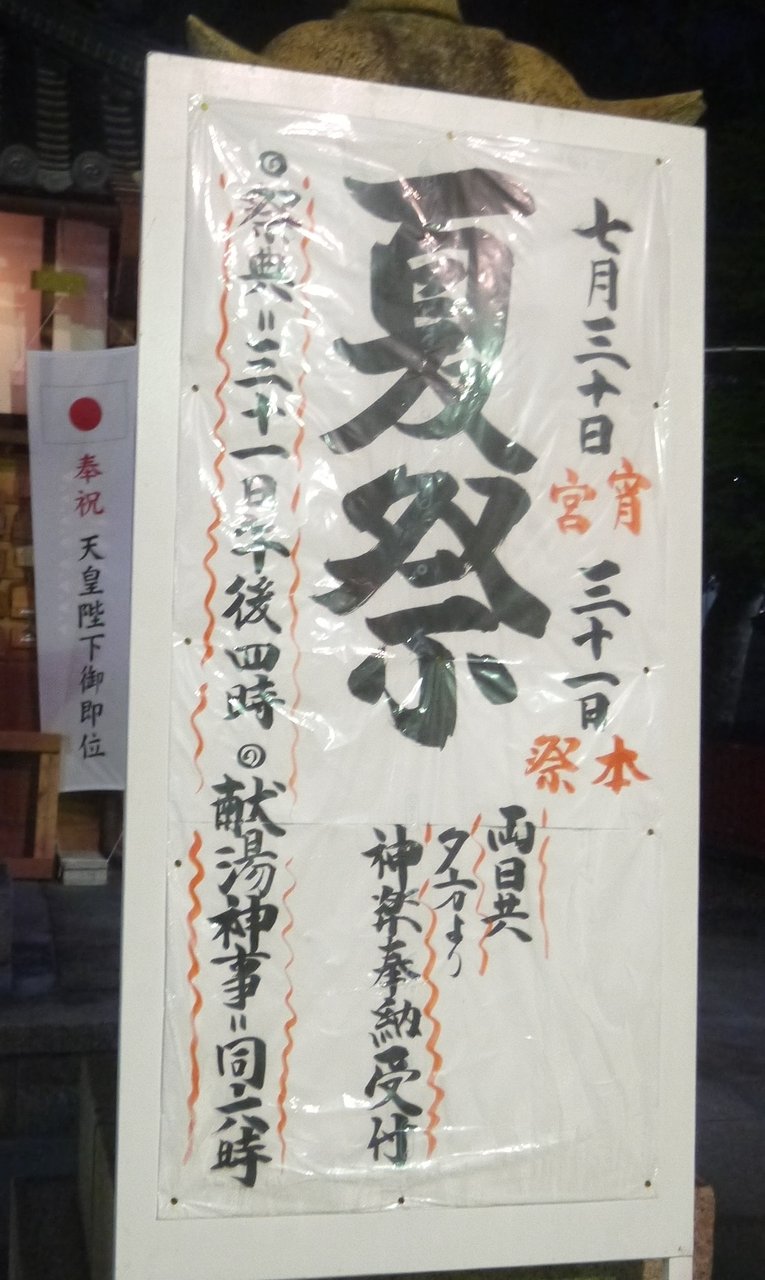 七月三十日 宵宮 三十一日 本祭
夏祭
両日共
夕方より
神楽奉納受付
◎祭典＝三十一日午後四時 ◎献湯神事＝同六時
奉祝 天皇陛下御即位